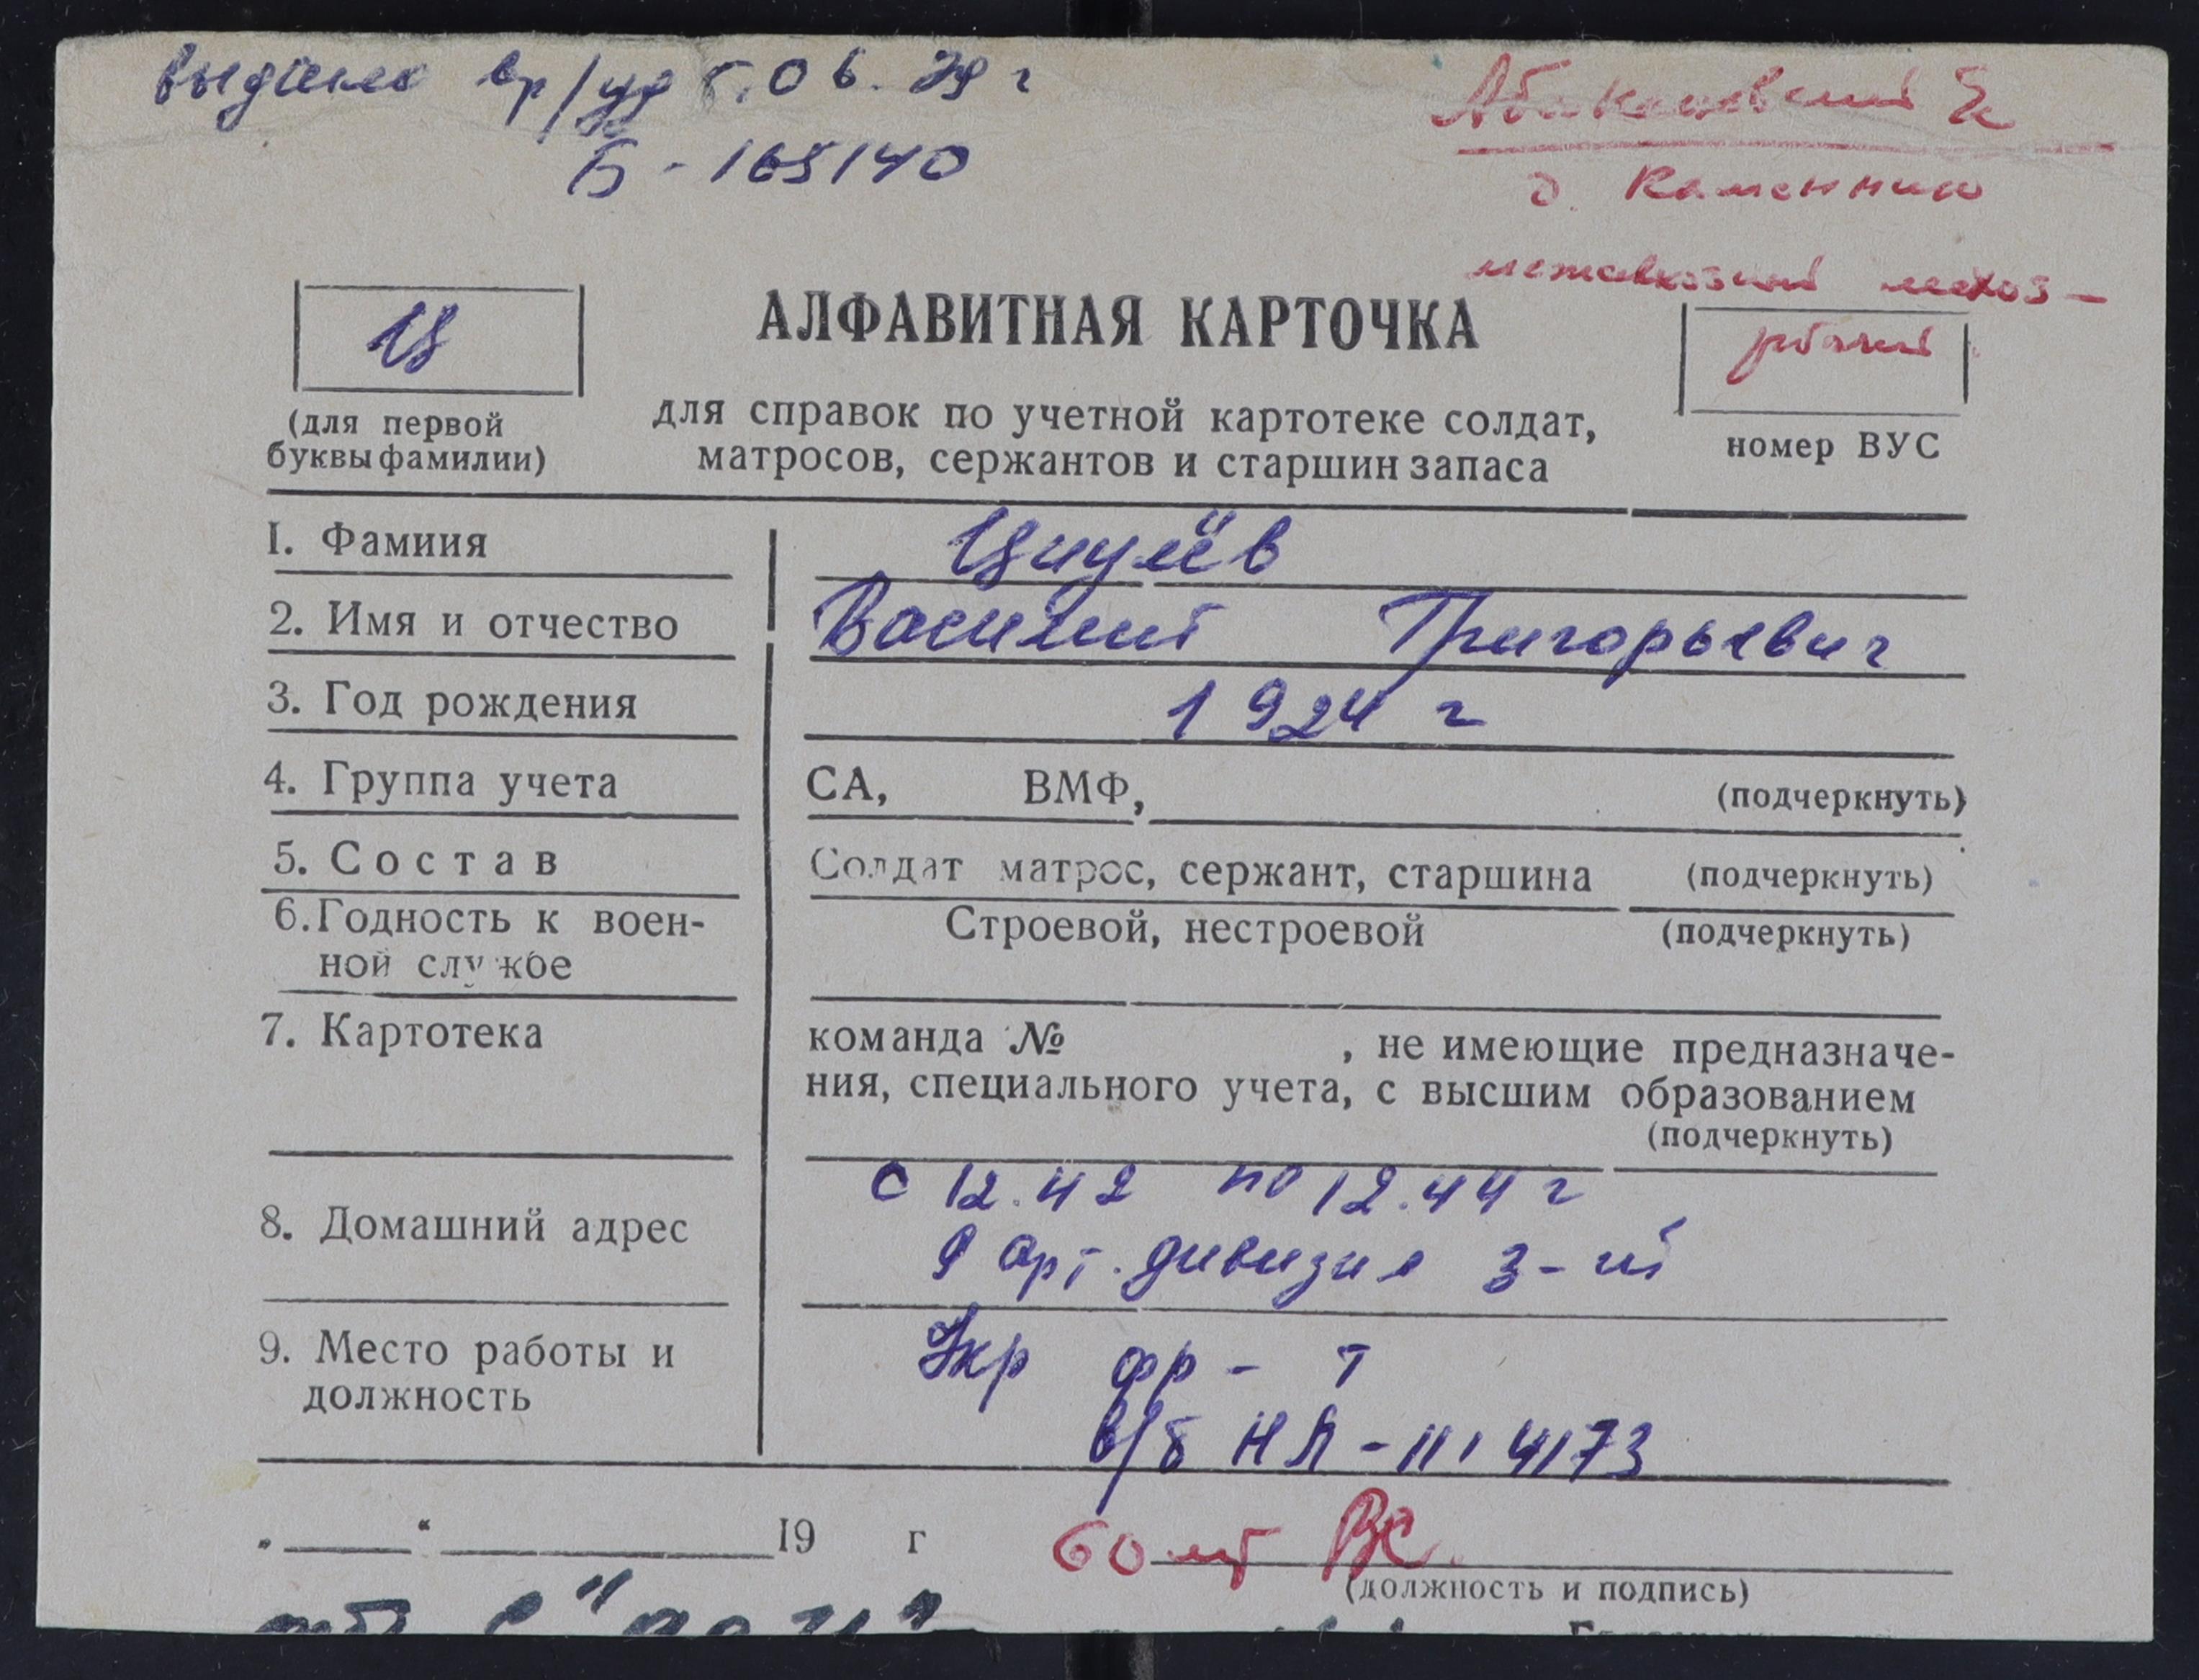 выдано вр/уд 5.06.79 г
Б - 165140
д. Каменник
межколхозный лесхоз -
рабочий
Ц
АЛФАВИТНАЯ КАРТОЧКА
(для первой
буквы фамилии)
для справок по учетной картотеке солдат,
матросов, сержантов и старшин запаса
номер ВУС
I. Фамиия Цицулёв
2. Имя и отчество Василий Григорьевич
3. Год рождения 1924 г
4. Группа учета СА, ВМФ, (подчеркнуть)
5. Состав Солдат матрос, сержант, старшина (подчеркнуть)
6. Годность к воен-
ной службе Строевой, нестроевой (подчеркнуть)
7. Картотека команда № , не имеющие предназначе-
ния, специального учета, с высшим образованием
(подчеркнуть)
с 12.42 по 12.44 г
8. Домашний адрес 9 арт. дивизия 3-й
9. Место работы и
должность Укр фр-т
в/б НЛ - 1114173
„ “ 19 г 60 лет ВС.
(должность и подпись)